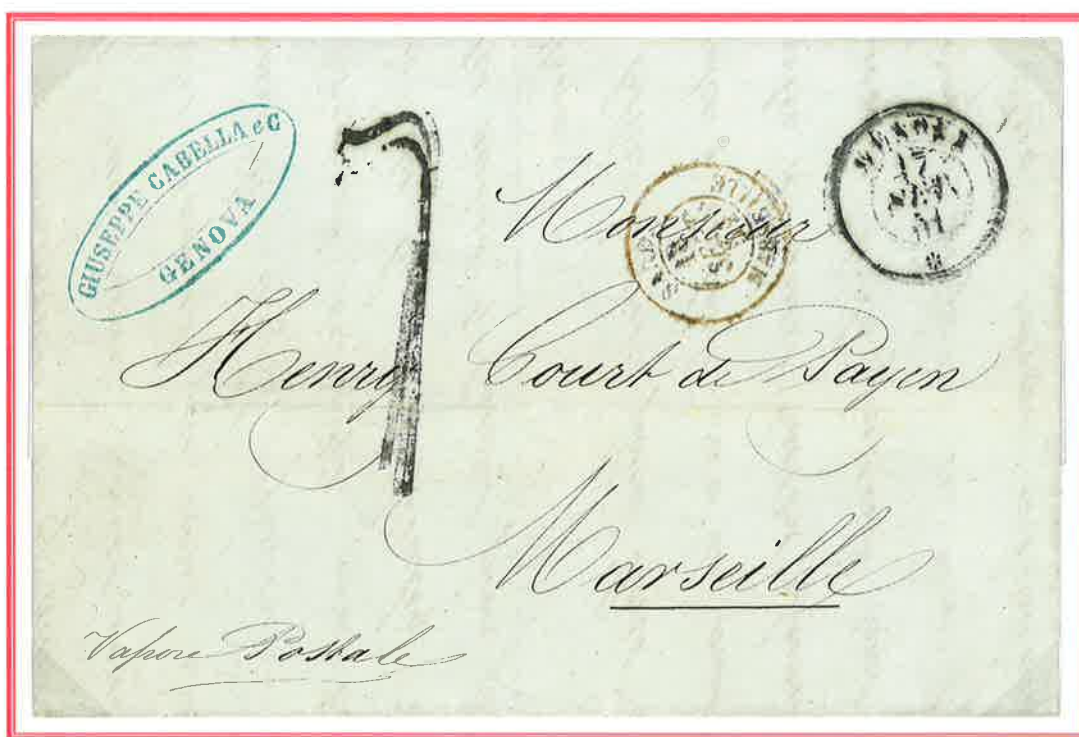 GIUSEPPE CABELLA e C
GENOVA
GENOVA
17
*
Monsieur
Henry Court de Payen
Marseille
Vapore Postale